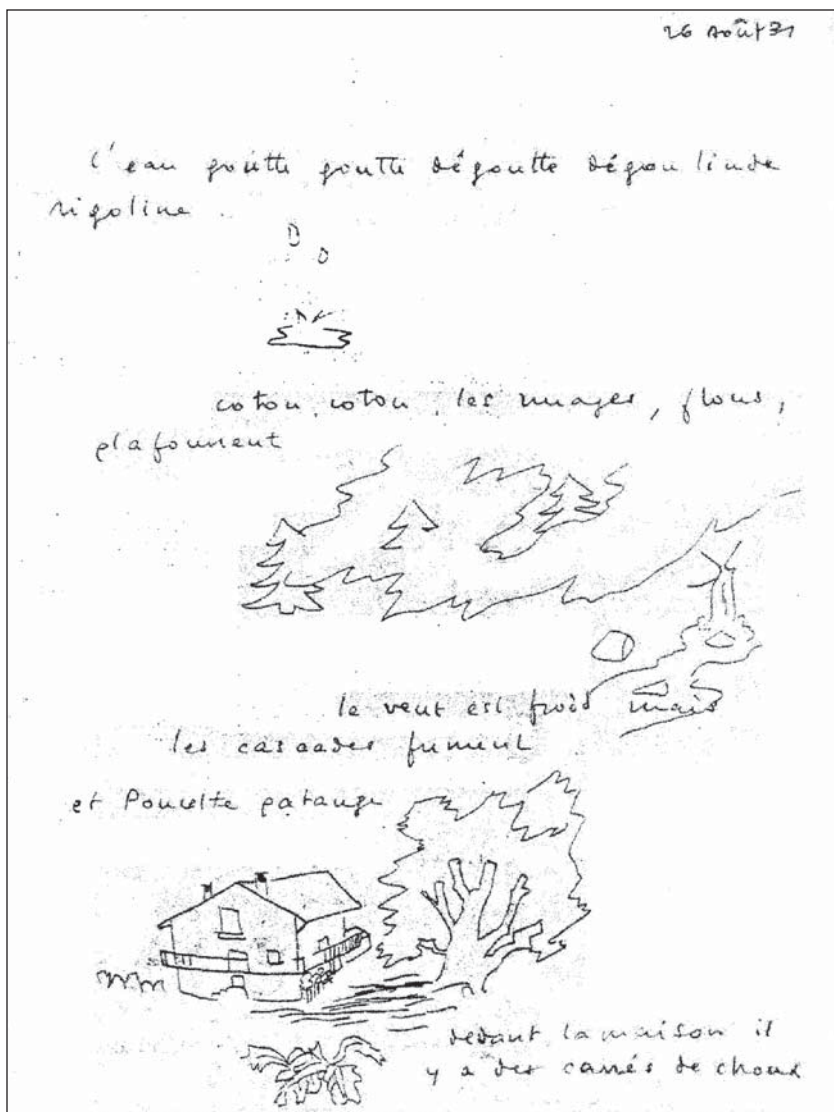 26 août 31
l'eau goutte goutte dégoutte dégouline
rigoline
coton, coton, les nuages, flous,
plafonnent
le vent est froid mais
les cascades fument
et Poucette patauge
devant la maison il
y a des carrés de choux